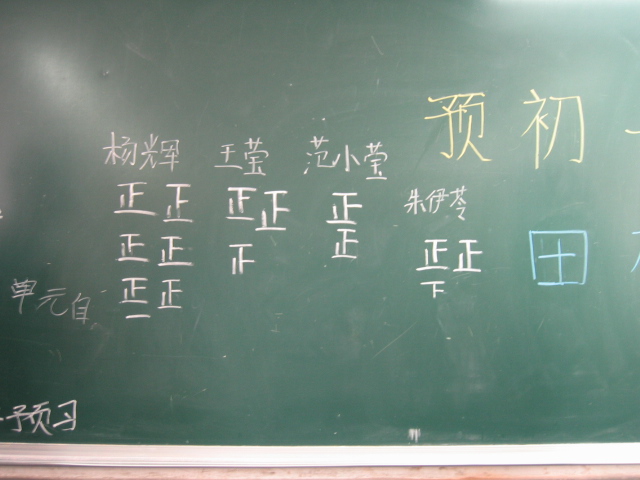 预初
杨辉
正正
正正
正正
一
王莹
正正
范小莹
正
正
朱伊苓
正正
下
田
单元自
预习